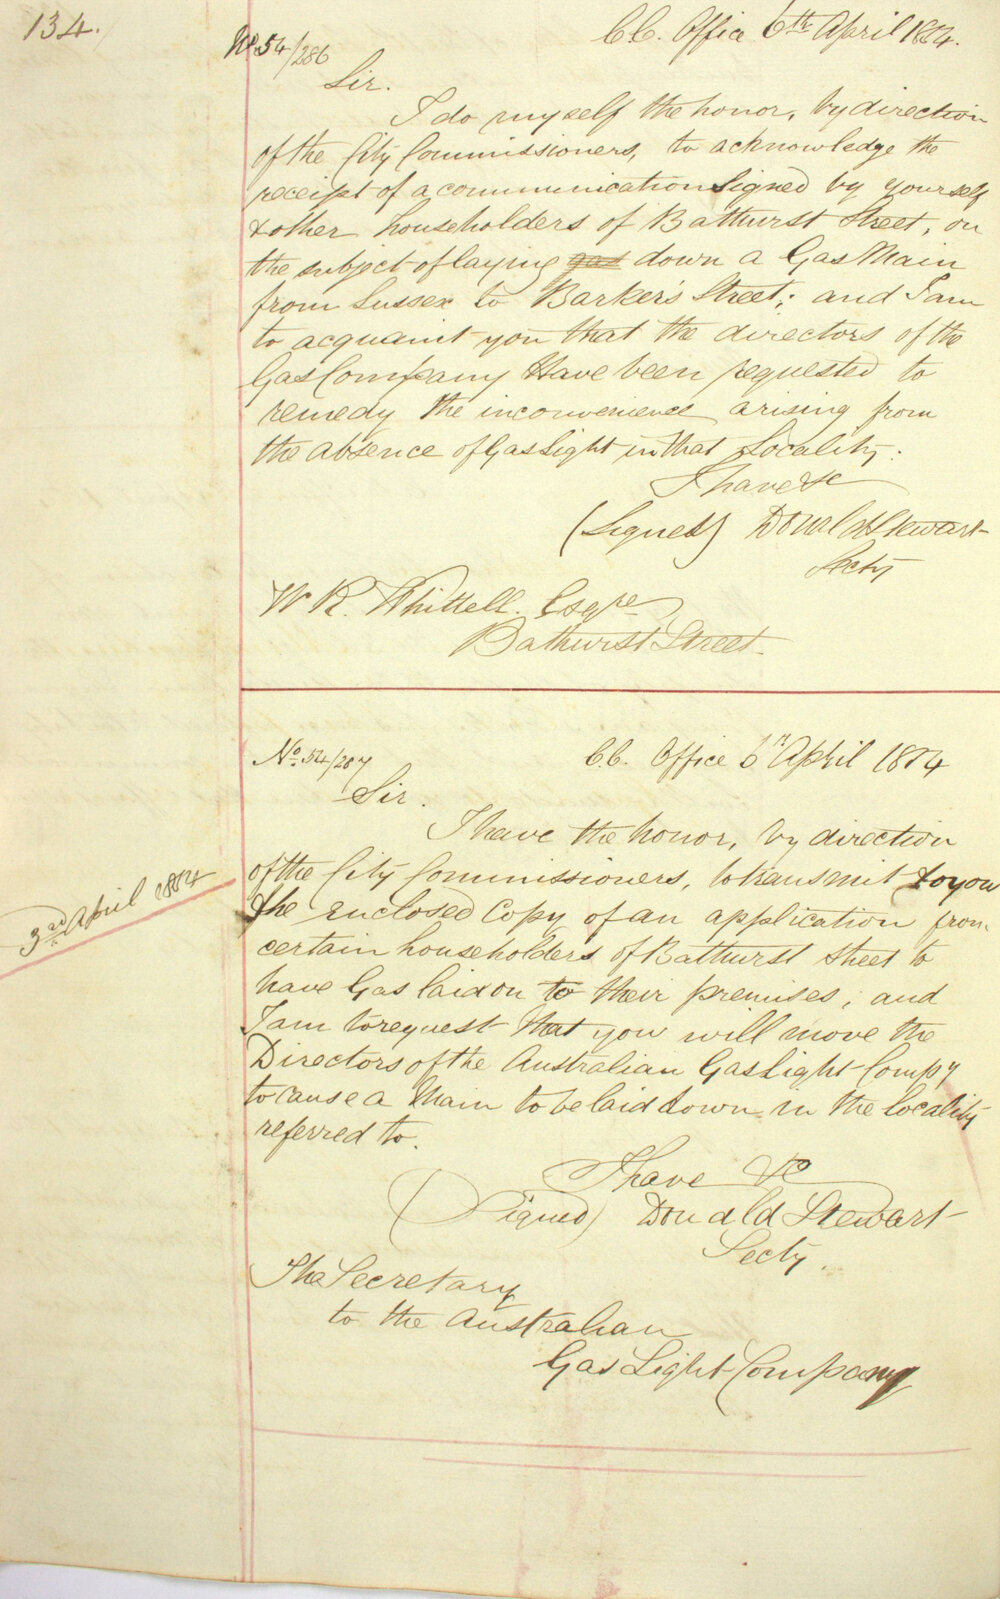 134.
No. 54/286
C.C. Office 6th April 1854.
Sir.
I do myself the honor, by direction
of the City Commissioners, to acknowledge the
receipt of a communication signed by yourself
& other householders of Bathurst Street, on
the subject of laying gas down a Gas Main
from Sussex to Barker's Street; and I am
to acquaint you that the directors of the
Gas Company Have been requested to
remedy the inconvenience arising from
the absence of Gas Light in that Locality.
I have &c
(Signed) Donald Stewart
Secty
W R. Whittell. Esqre
Bathurst Street.
No. 54/287
C.C. Office 6th April 1854
Sir.
I have the honor, by direction
of the City Commissioners, to transmit to you
3rd April 1854
the enclosed Copy of an application from
certain householders of Bathurst Street to
have Gas laid on to their premises; and
I am to request that you will move the
Directors of the Australian Gas Light Compy
to cause a Main to be laid down in the locality
referred to.
I have &c
(Signed) Donald Stewart
Secty.
The Secretary
to the Australian
Gas Light Company